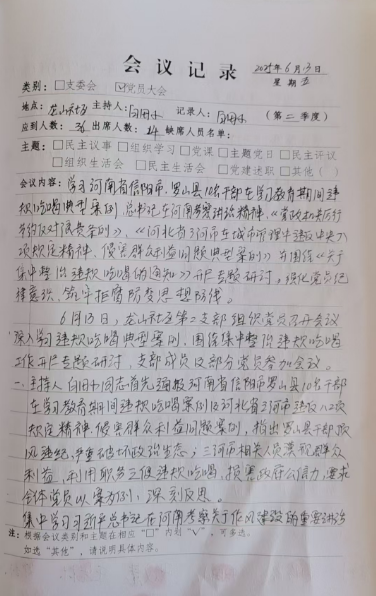 会议记录
2025年6月13日
星期五
类别：□支委会 ☑党员大会
地点：龙山社区 主持人：白田小 记录人：白田小 （第二季度）
应到人数：36 出席人数：24 缺席人员名单：
主题：□民主议事 □组织学习 □党课 □主题党日 □民主评议
□组织生活会 □民主生活会 □党建述职 □其他（ ）
会议内容：学习河南省信阳市罗山县10名干部在学习教育期间违
规吃喝典型案例、总书记在河南考察讲话精神、《党政机关厉行
节约反对浪费条例》、《河北省三河市在城市管理中违反中央八
项规定精神、侵害群众利益问题典型案例》并围绕《关于
集中整治违规吃喝的通知》开展专题研讨，强化党员纪
律意识、筑牢拒腐防变思想防线。
6月13日，龙山社区第二支部组织党员召开会议
深入学习违规吃喝典型案例、围绕集中整治违规吃喝
工作开展专题研讨，支部成员及部分党员参加会议。
一、主持人白田小同志首先通报河南省信阳市罗山县10名干部
在学习教育期间违规吃喝案例及河北省三河市违反八项
规定精神、侵害群众利益问题案例，指出罗山县干部顶
风违纪，严重破坏政治生态；三河市相关人员漠视群众
利益，利用职务之便违规吃喝，损害政府公信力，要求
全体党员以案为例，深刻反思。
集中学习习近平总书记在河南考察关于作风建设的重要讲话
注：根据会议类别和主题在相应“□”内划“√”，可多选。
如选“其他”，请说明具体内容。